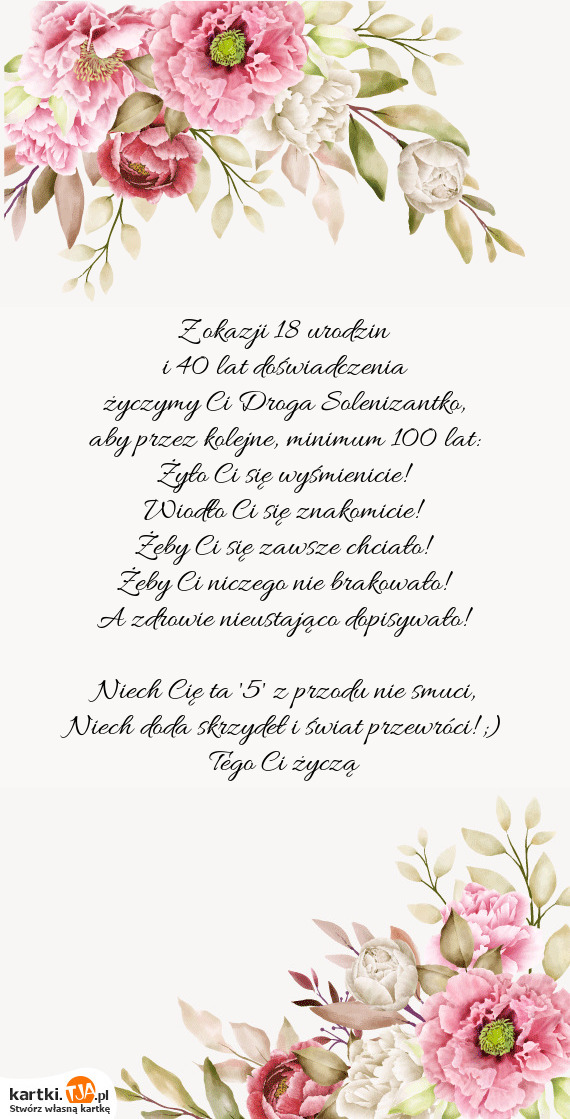 Z okazji 18 urodzin
i 40 lat doświadczenia
życzymy Ci Droga Solenizantko,
aby przez kolejne, minimum 100 lat:
Żyło Ci się wyśmienicie!
Wiodło Ci się znakomicie!
Żeby Ci się zawsze chciało!
Żeby Ci niczego nie brakowało!
A zdrowie nieustająco dopisywało!
Niech Cię ta '5' z przodu nie smuci,
Niech doda skrzydeł i świat przewróci! ;)
Tego Ci życzą
kartki.TJA.pl
Stwórz własną kartkę